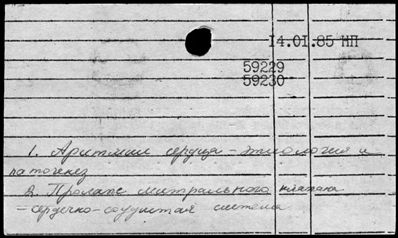 14.01.85 НП
59229
59230
1. Аритмии сердца - этиология и
патогенез
2. Пролапс митрального клапана
- сердечно-сосудистая система